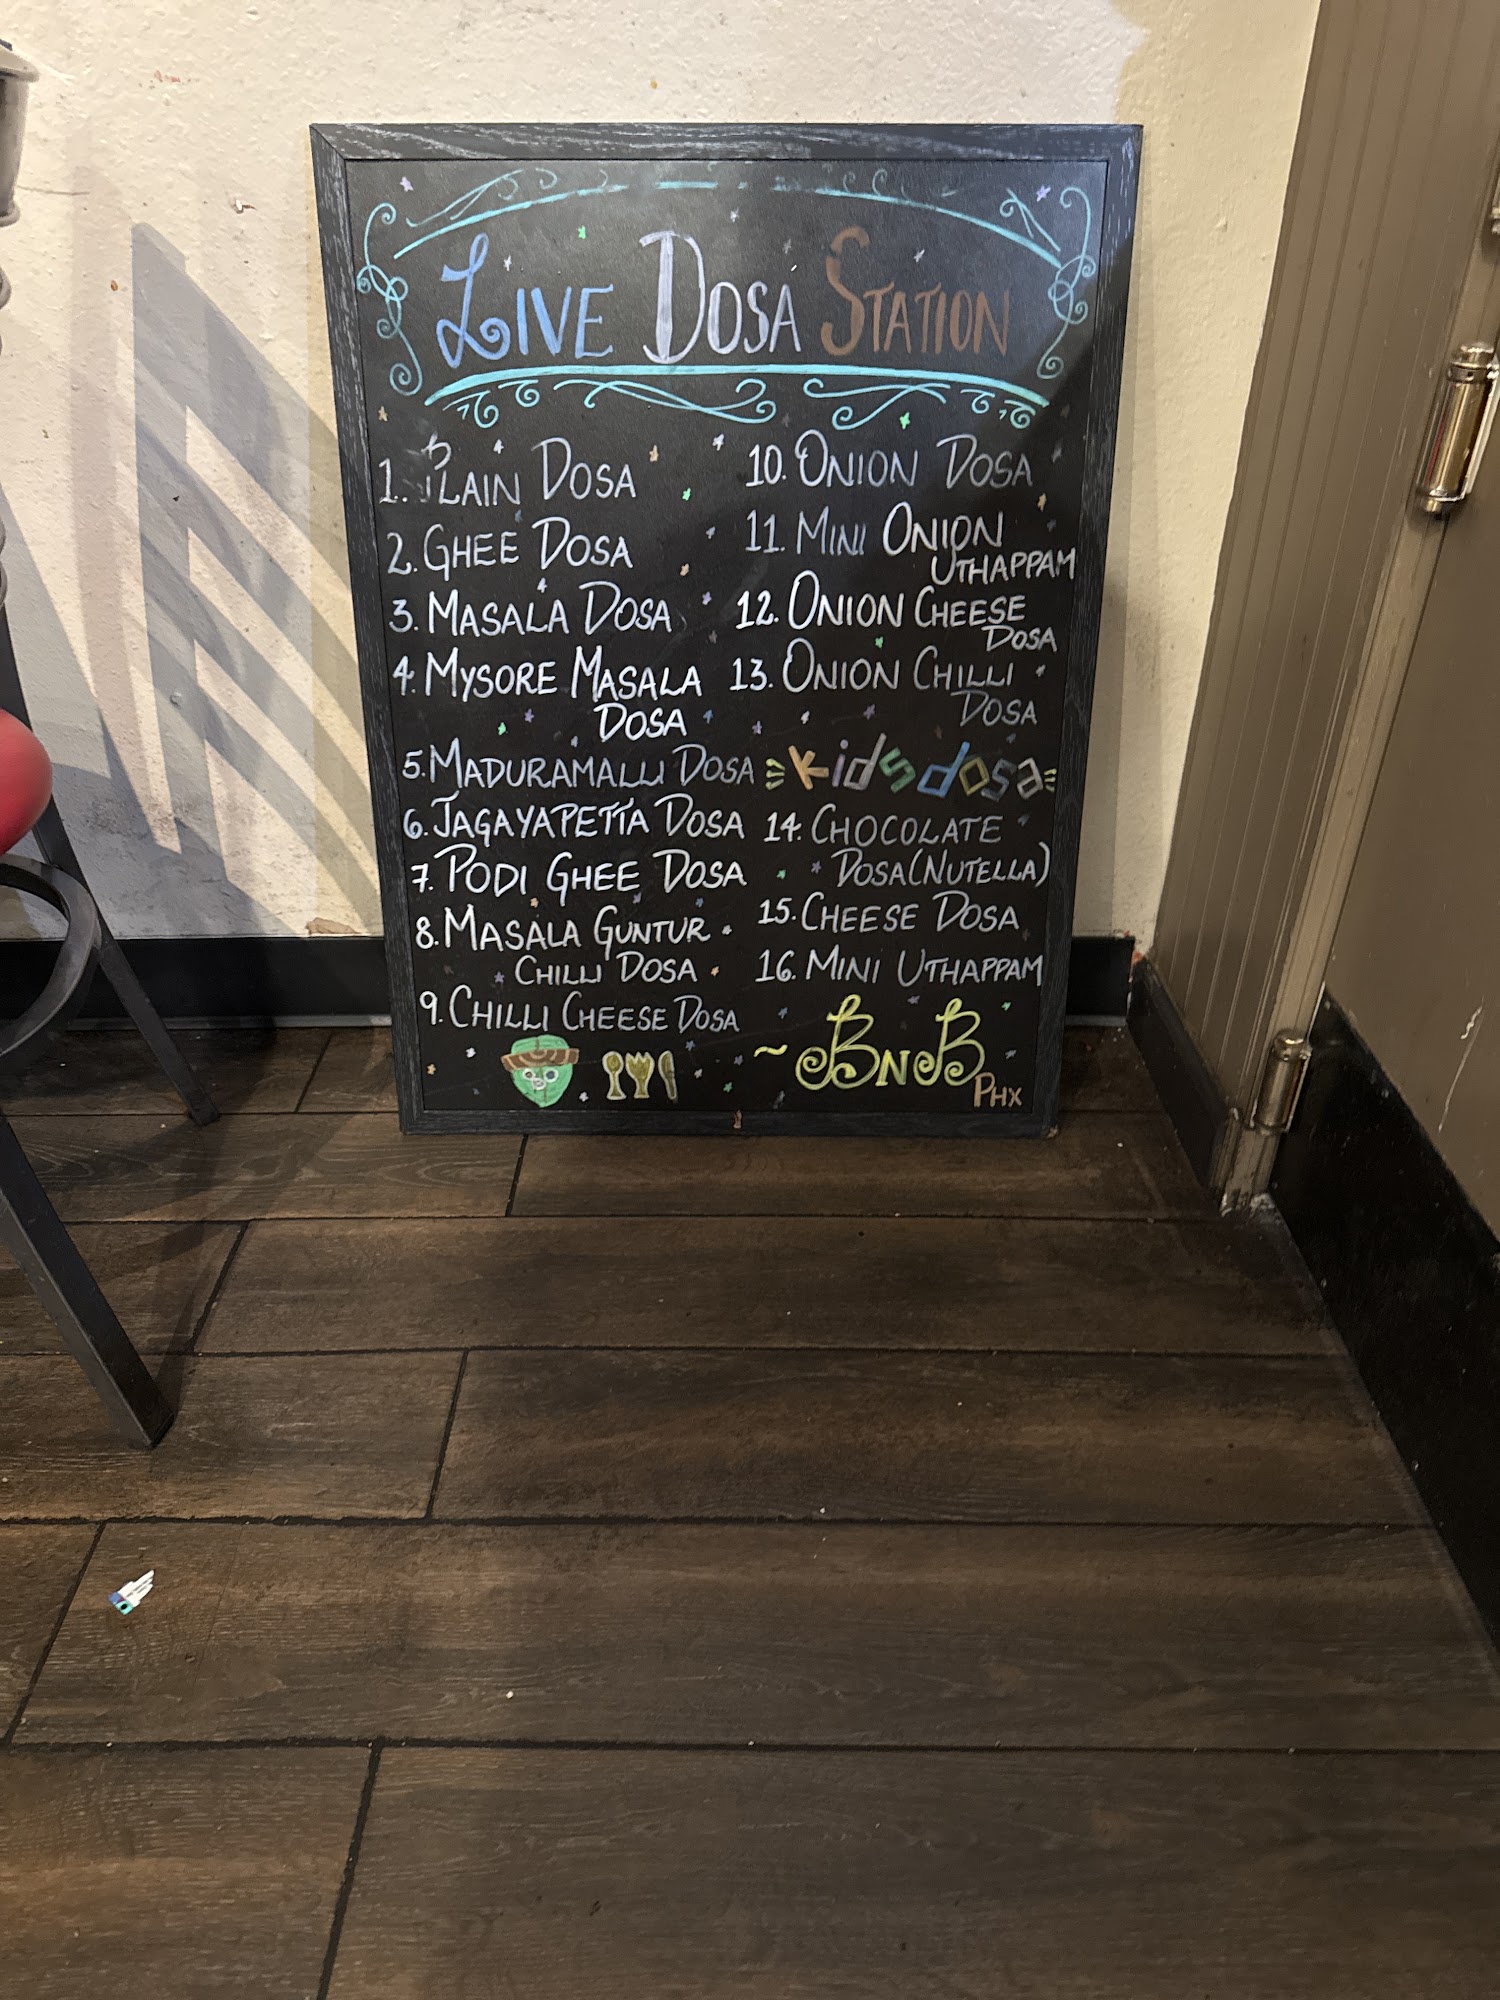 LIVE DOSA STATION
1. PLAIN DOSA
2. GHEE DOSA
3. MASALA DOSA
4. MYSORE MASALA
DOSA
5. MADURAMALLI DOSA
6. JAGAYAPETTA DOSA
7. PODI GHEE DOSA
8. MASALA GUNTUR
CHILLI DOSA
9. CHILLI CHEESE DOSA
10. ONION DOSA
11. MINI ONION
UTHAPPAM
12. ONION CHEESE
DOSA
13. ONION CHILLI
DOSA
kids dosa
14. CHOCOLATE
DOSA (NUTELLA)
15. CHEESE DOSA
16. MINI UTHAPPAM
~ BNB
PHX